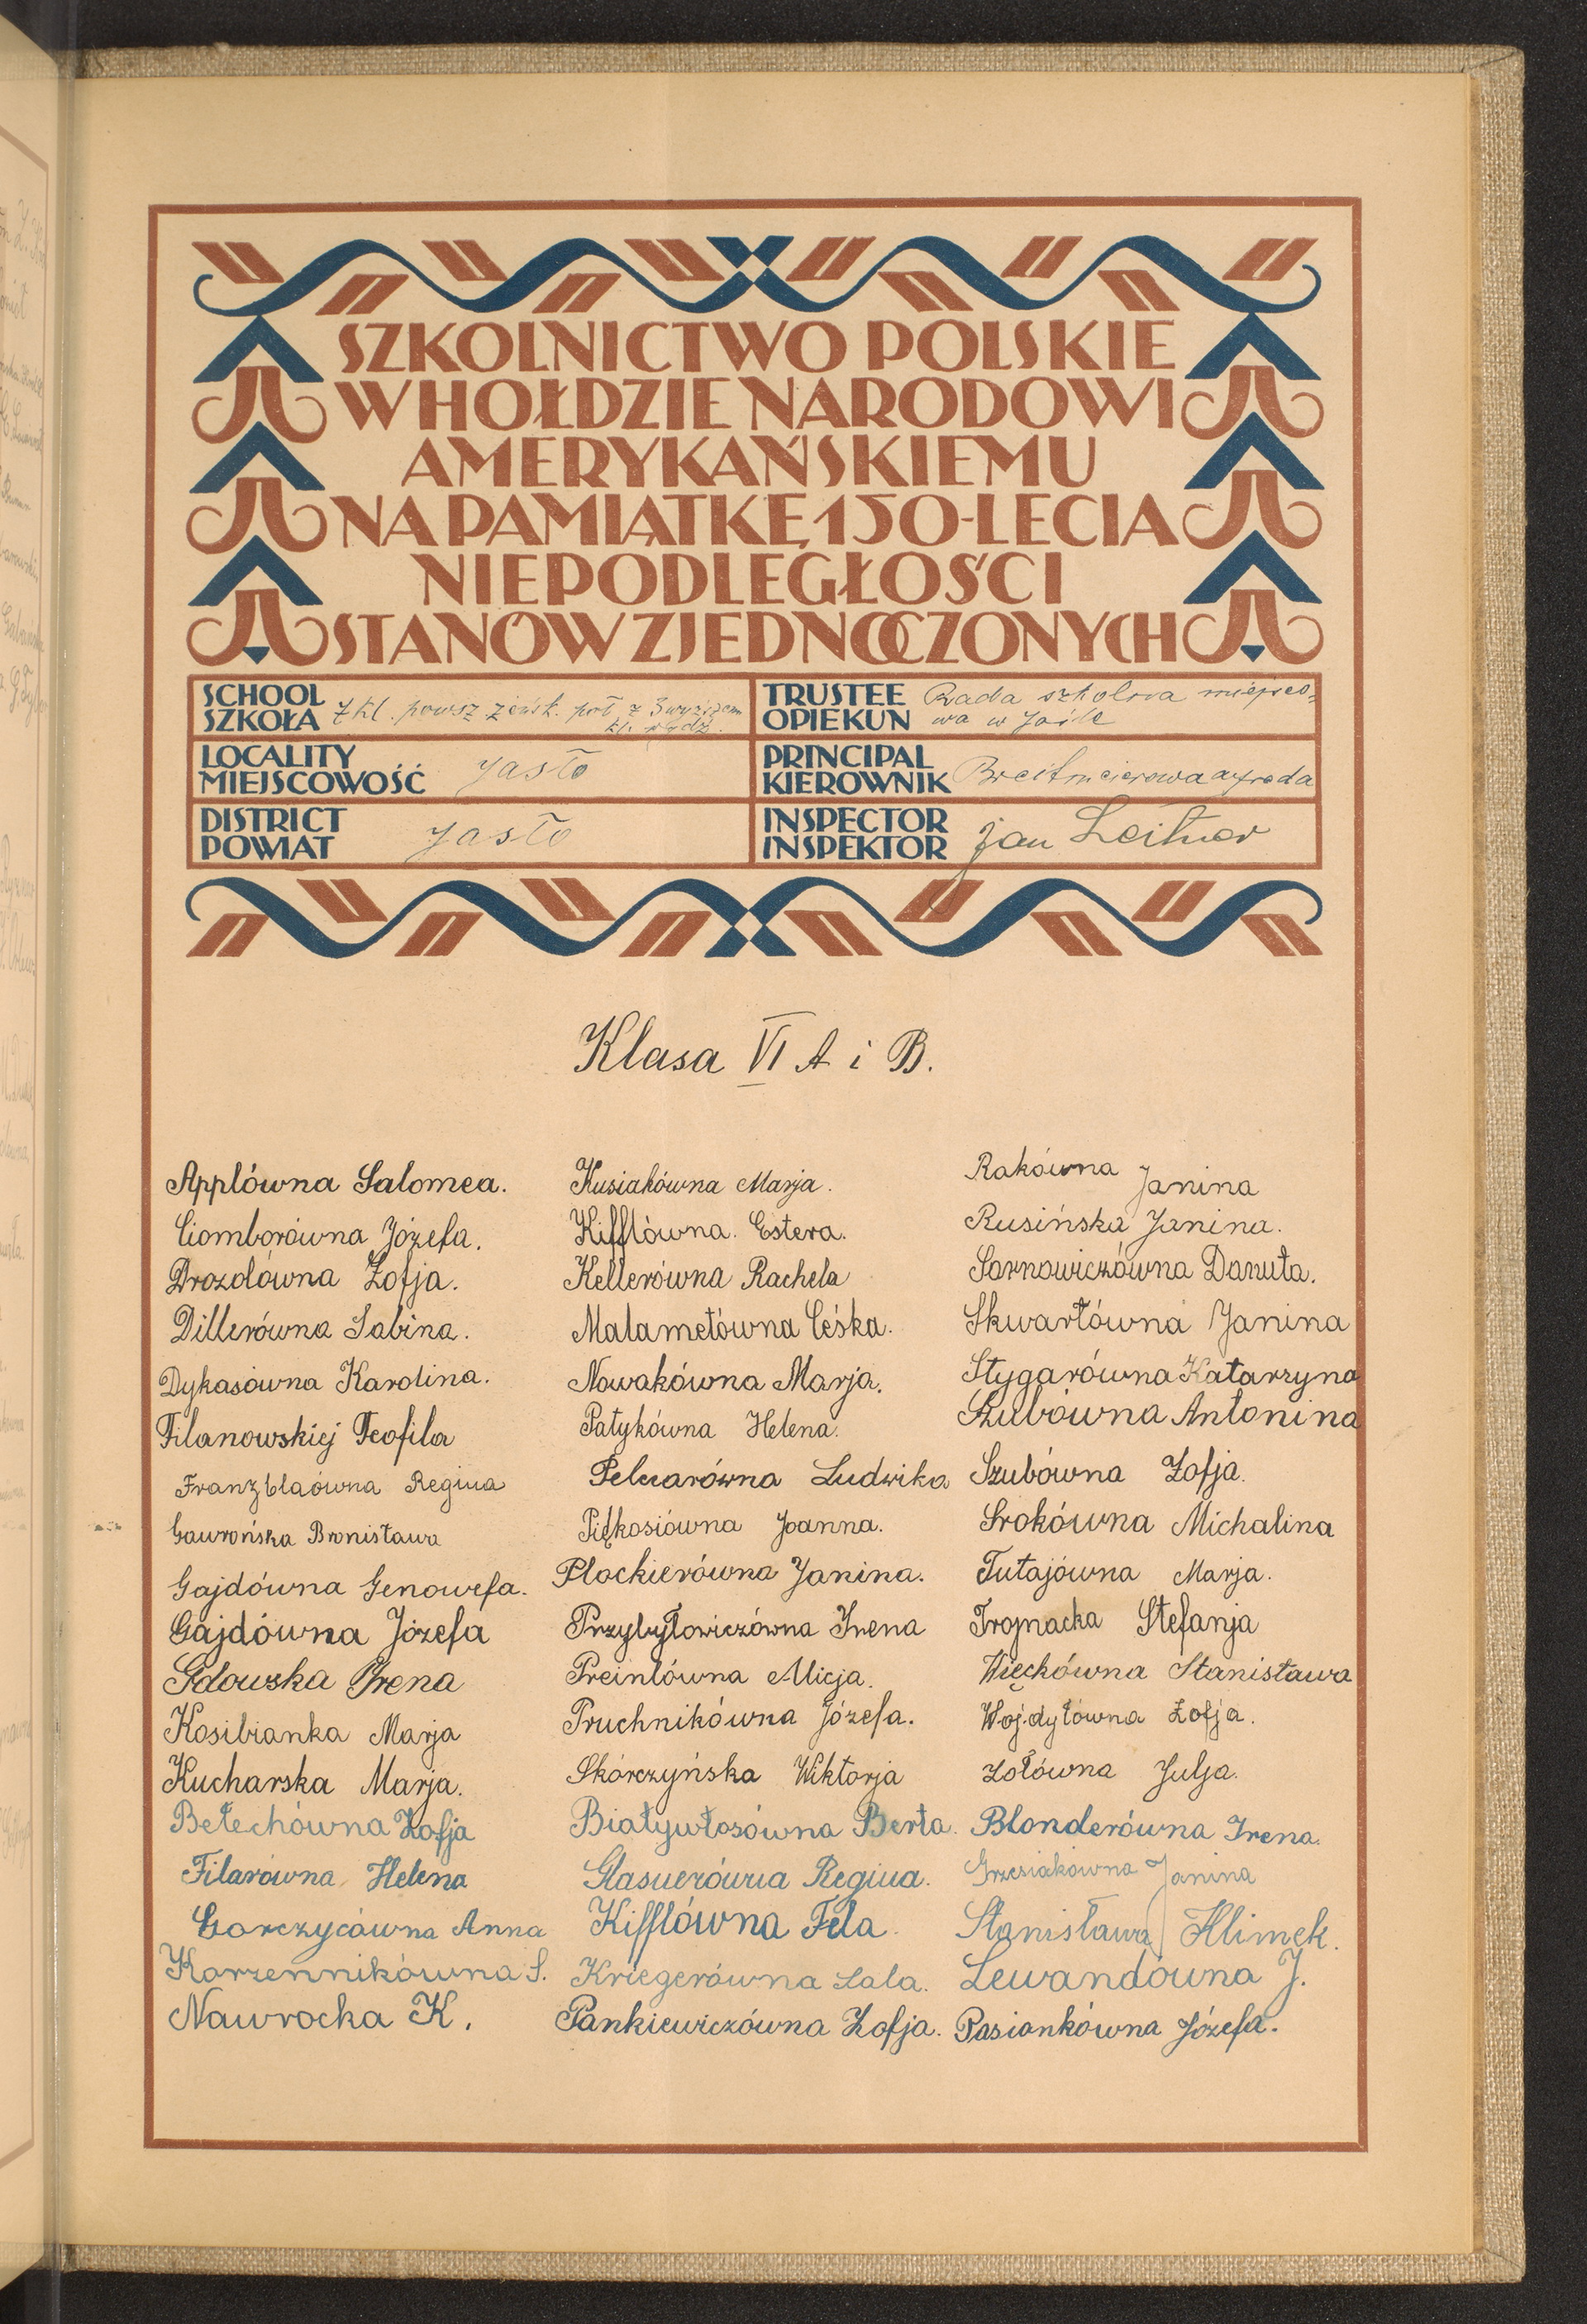 SZKOLNICTWO POLSKIE
W HOŁDZIE NARODOWI
AMERYKAŃSKIEMU
NA PAMIĄTKĘ 150-LECIA
NIEPODLEGŁOŚCI
STANÓW ZJEDNOCZONYCH
SCHOOL
SZKOŁA
7 kl. powsz żeńsk. poł z 3 wyższem
kl.
TRUSTEE
OPIEKUN
Rada szkolna miejsco-
wa w Jaśle
LOCALITY
MIEJSCOWOŚĆ
Jasło
PRINCIPAL
KIEROWNIK
Breitmeierowa
DISTRICT
POWIAT
Jasło
INSPECTOR
INSPEKTOR
Jan Leitner
Klasa VI A i B.
Applówna Salomea.
Ciomborówna Józefa.
Drozdówna Zofja.
Dillerówna Sabina.
Dykasówna Karolina.
Filanowskiej Teofila
Franzblaówna Regina
Gawrońska Bronisława
Gajdówna Genowefa.
Gajdówna Józefa
Gdowska Irena
Kosibianka Marja
Kucharska Marja.
Betechówna Zofja
Filarówna Helena
Gorczycówna Anna
Korzennikówna S.
Nawrocka K.
Kusiakówna Marja.
Kifflówna. Estera.
Kellerówna Rachela
Malametówna Céśka.
Nowakówna Marja.
Patykówna Helena.
Pelczarówna Ludwika
Piękosiówna Joanna.
Plockierówna Janina.
Przybyłowiczówna Irena
Preinlówna Alicja.
Pruchnikówna Józefa.
Skórczyńska Wiktorja
Białywłosówna Berta.
Glasnerówna Regina.
Kifflówna Fela.
Kriegerówna Lala.
Pankiewiczówna Zofja.
Rakówna Janina
Rusińska Janina.
Sarnowiczówna Danuta.
Skwarłówna Janina
Stygarówna Katarzyna
Szubówna Antonina
Szubówna Zofja.
Srokówna Michalina
Tutajówna Marja.
Trojnacka Stefanja
Więckówna Stanisława
Wojdyłówna Zofja.
Zołówna Julja.
Blonderówna Irena.
Grzesiakówna Janina
Stanisława Klimek.
Lewandówna J.
Pasionkówna Józefa.